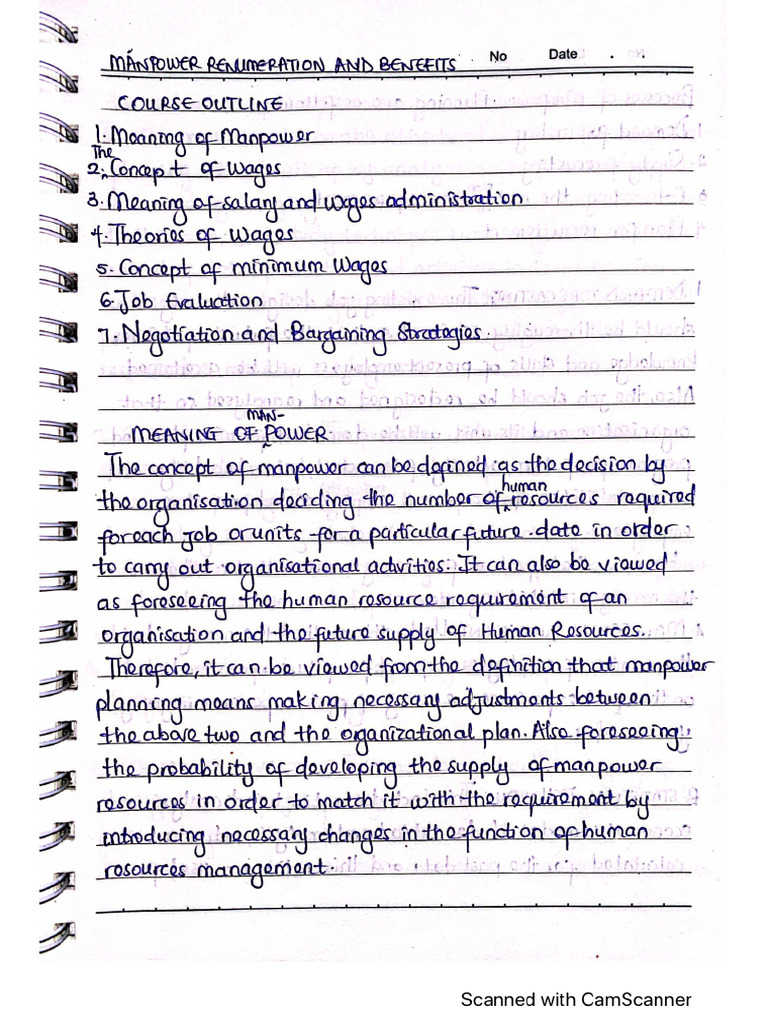 MANPOWER RENUMERATION AND BENEFITS No Date
COURSE OUTLINE
1. Meaning of Manpower
2. The Concept of Wages
3. Meaning of salary and wages administration
4. Theories of Wages
5. Concept of minimum Wages
6. Job Evaluation
7. Negotiation and Bargaining Strategies.
MEANING OF MAN-POWER
The concept of manpower can be defined as the decision by
the organisation deciding the number of human resources required
for each job or units for a particular future date in order
to carry out organisational activities. It can also be viewed
as foreseeing the human resource requirement of an
organisation and the future supply of Human Resources.
Therefore, it can be viewed from the definition that manpower
planning means making necessary adjustments between
the above two and the organizational plan. Also foreseeing
the probability of developing the supply of manpower
resources in order to match it with the requirement by
introducing necessary changes in the function of human
resources management.
Scanned with CamScanner